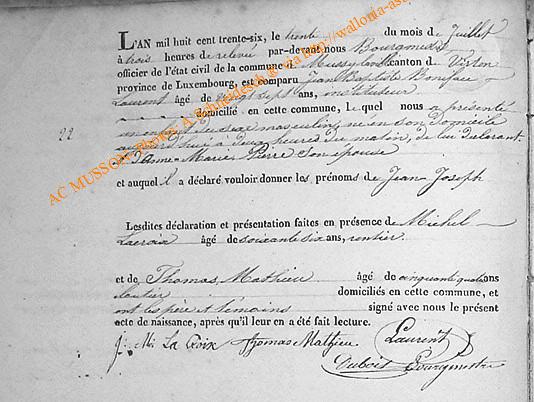 L'AN mil huit cent trente-six, le trente du mois de Juillet
à trois heures de relevé par-devant nous Bourgmestre
officier de l'état civil de la commune de Mussy canton de Virton
province de Luxembourg, est comparu Jean Baptiste Boniface
Laurent âgé de vingt sept ans, instituteur
domicilié en cette commune, lequel nous a présenté
22
un enfant du sexe masculin né en son Domicile
à deux heures du matin, de lui Déclarant
Anne Marie Pierre son épouse
et auquel il a déclaré vouloir donner les prénoms de Jean Joseph
Lesdites déclaration et présentation faites en présence de Michel
Lacroix âgé de soixante six ans, rentier
et de Thomas Mathieu âgé de cinquante quatre ans
domiciliés en cette commune, et
ont les père et témoins signé avec nous le présent
acte de naissance, après qu'il leur en a été fait lecture.
La Croix Thomas Mathieu Laurent
Dubois Bourgmestre
AC MUSSON